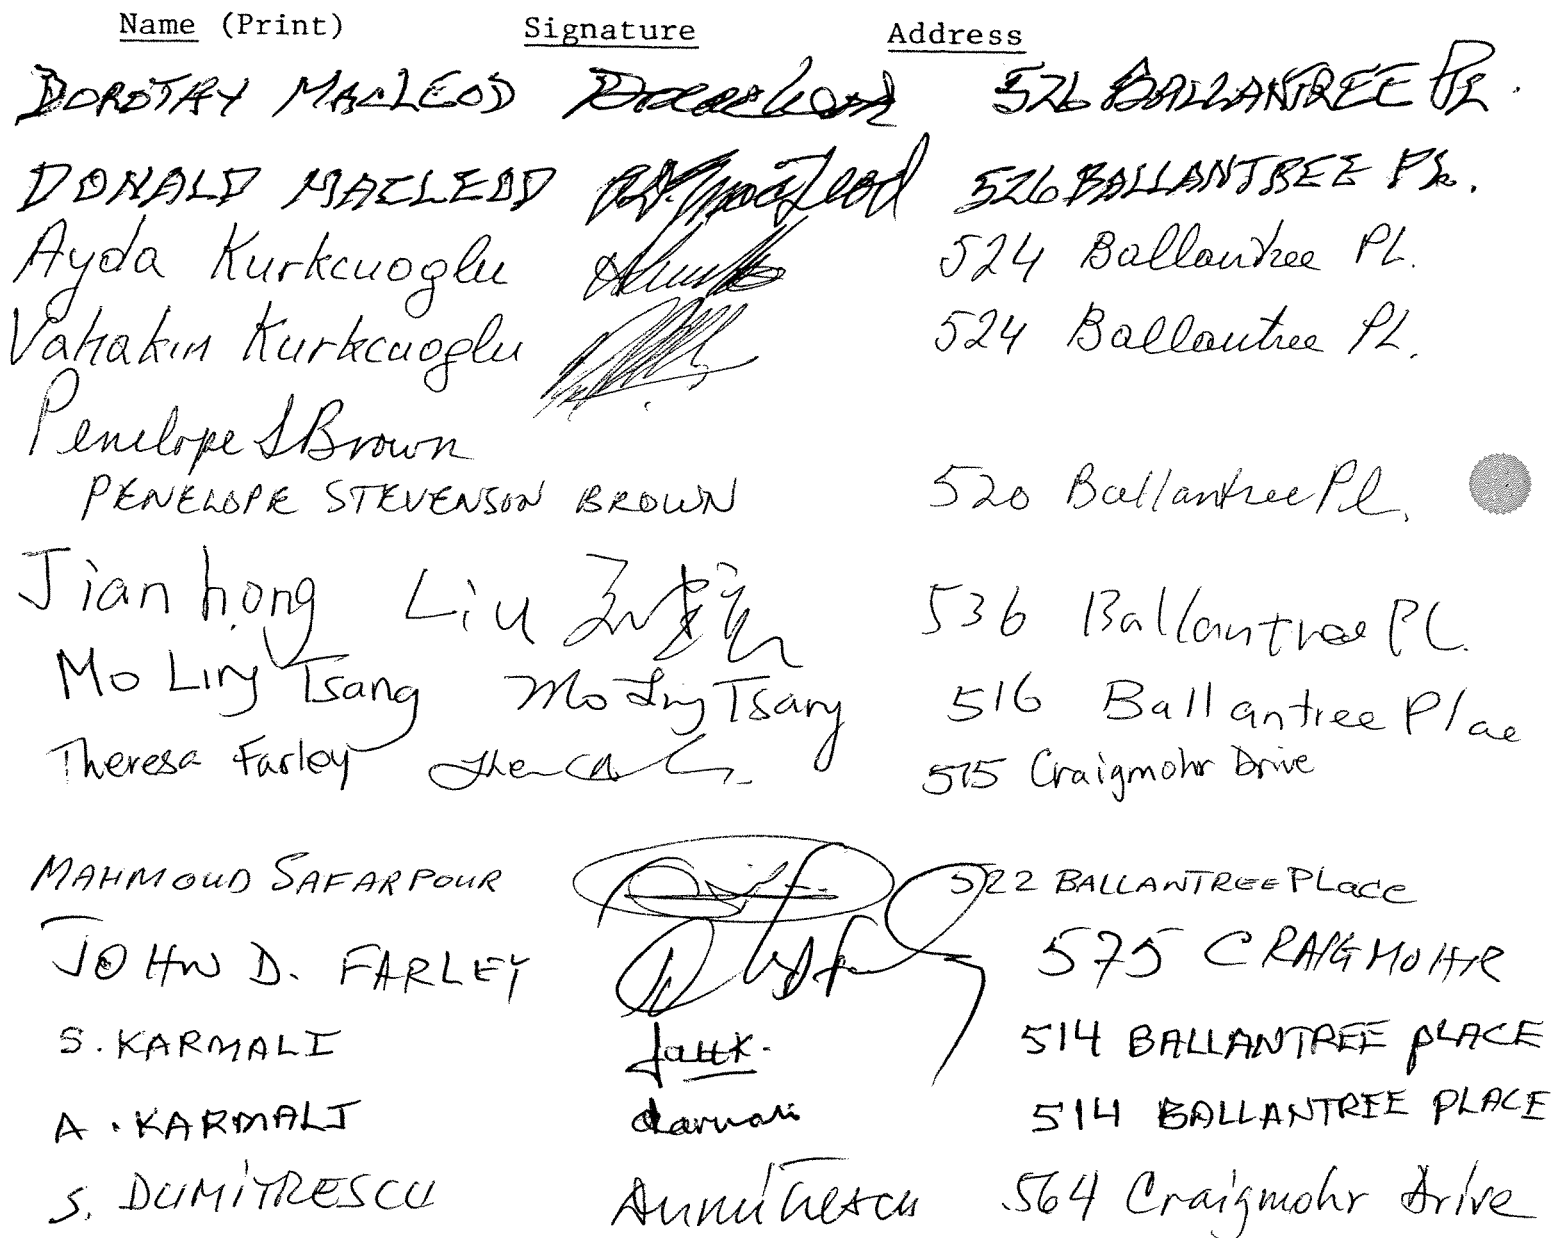 Name (Print) Signature Address
DOROTHY MACLEOD 526 BALLANTREE PL.
DONALD MACLEOD MacLeod 526 BALLANTREE PL.
Ayda Kurkcuoglu 524 Ballantree PL.
Vahakin Kurkcuoglu 524 Ballantree PL.
Penelope S Brown
PENELOPE STEVENSON BROWN 520 Ballantree Pl.
Jian hong Liu 536 Ballantree PL.
Mo Ling Tsang Mo Ling Tsang 516 Ballantree Plae
Theresa Farley 575 Craigmohr Drive
MAHMOUD SAFARPOUR 522 BALLANTREE PLace
JOHN D. FARLEY 575 CRAIGMOHR
S. KARMALI 514 BALLANTREE PLACE
A. KARMALI 514 BALLANTREE PLACE
S. DUMITRESCU Dumitrescu 564 Craigmohr Drive